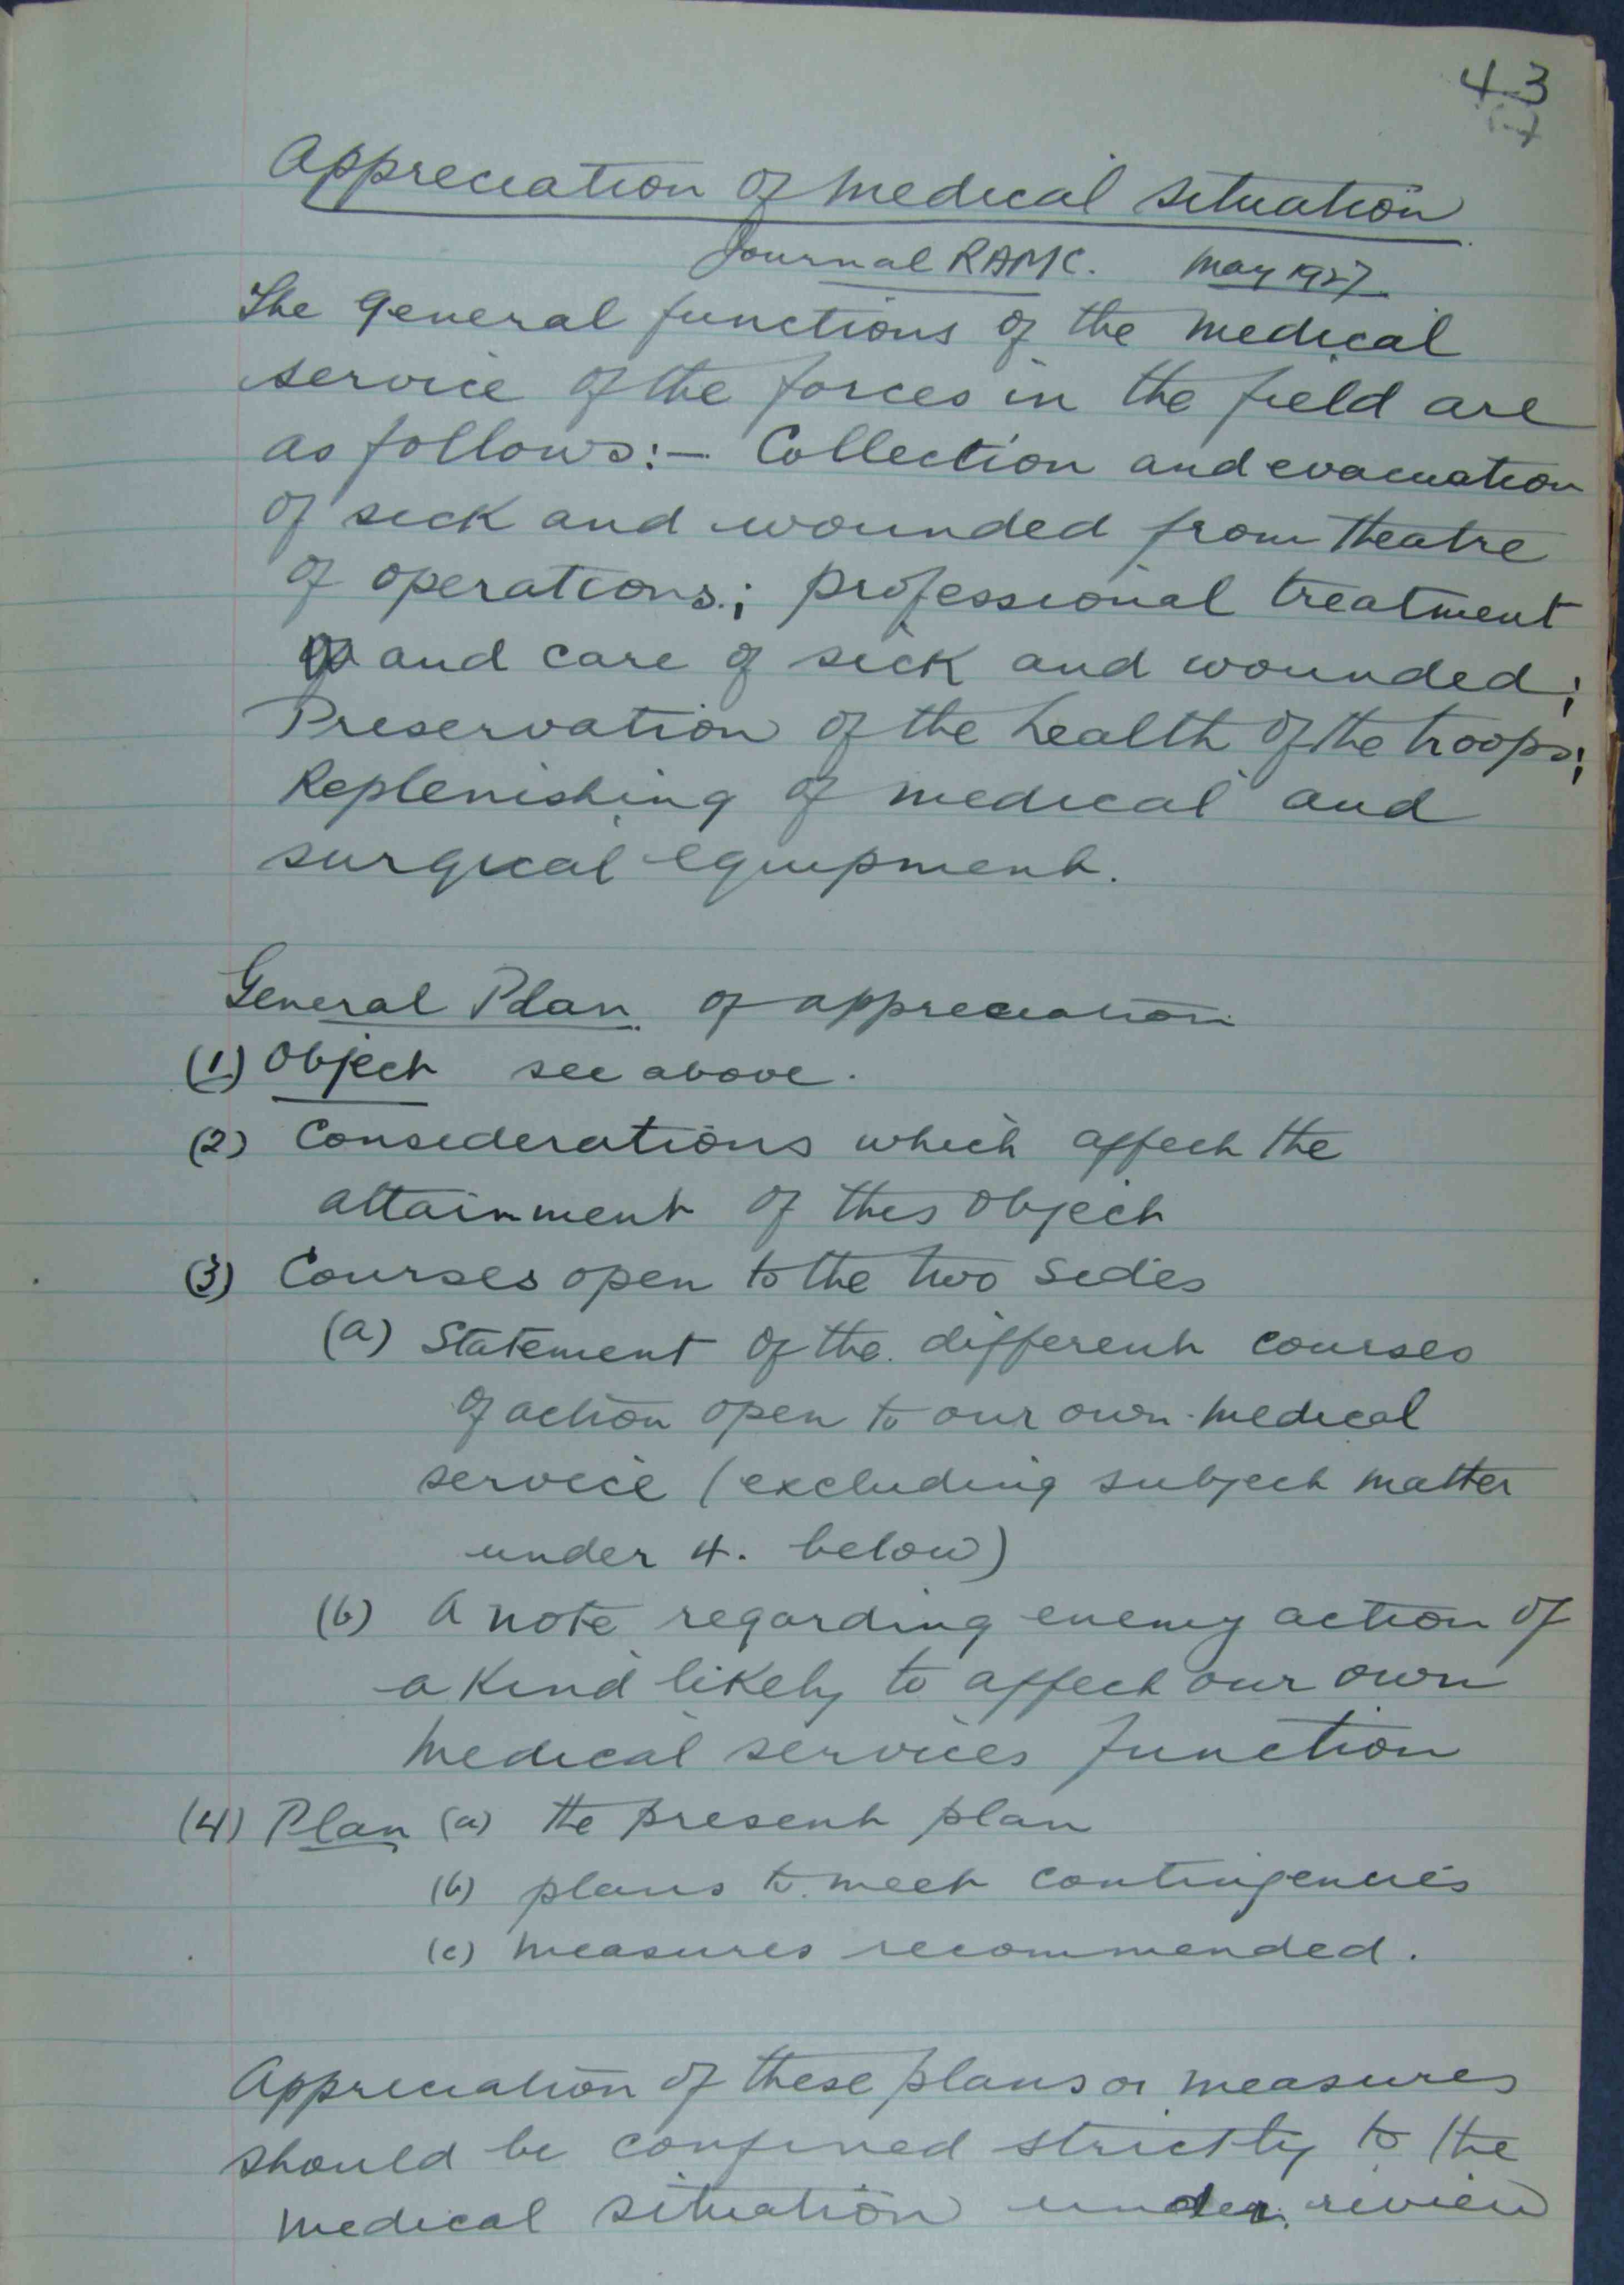 43
Appreciation of medical situation
Journal RAMC. May 1927
The general functions of the medical
service of the forces in the field are
as follows:- Collection and evacuation
of sick and wounded from theatre
of operations; professional treatment
and care of sick and wounded;
Preservation of the health of the troops;
Replenishing of medical and
surgical equipment.
General Plan of appreciation
(1) Object see above.
(2) Considerations which affect the
attainment of this object
(3) Courses open to the two sides
(a) Statement of the different courses
of action open to our own medical
service (excluding subject matter
under 4. below)
(b) A note regarding enemy action of
a kind likely to affect our own
medical services function
(4) Plan (a) the present plan
(b) plans to meet contingencies
(c) measures recommended.
Appreciation of these plans or measures
should be confined strictly to the
medical situation under review